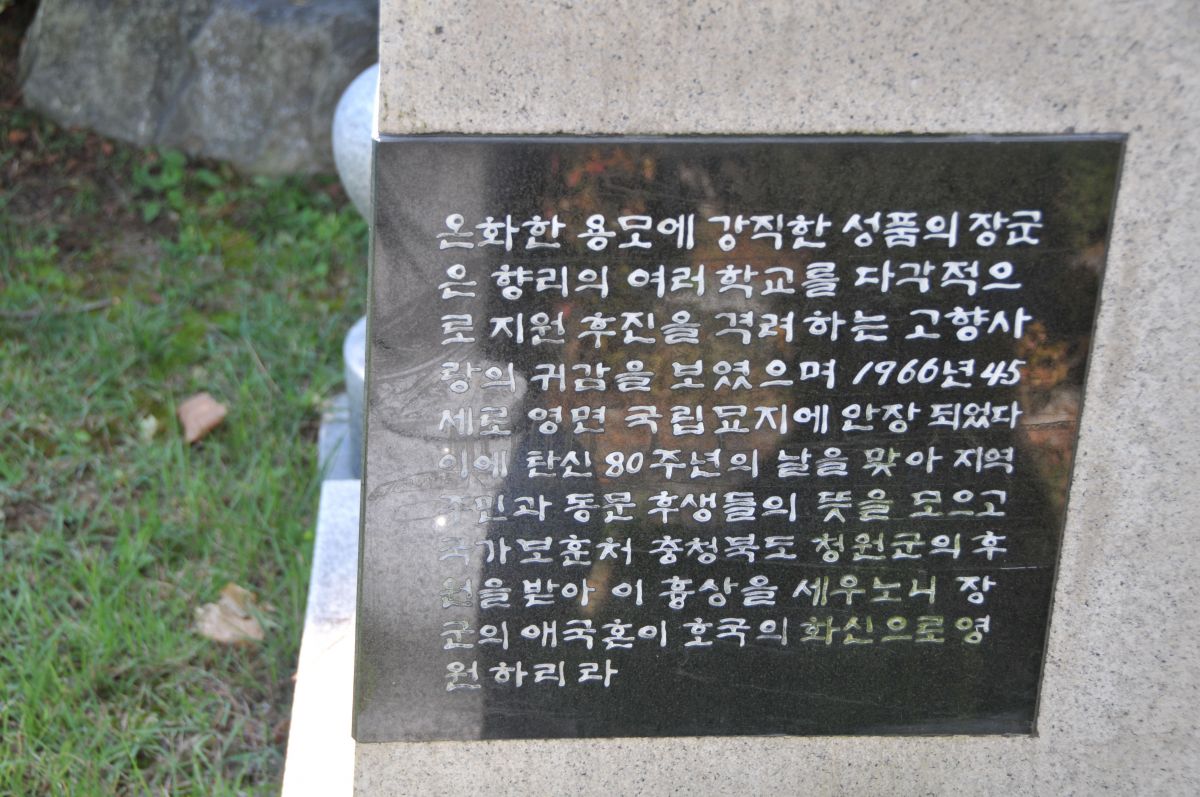 온화한 용모에 강직한 성품의 장군
은 향리의 여러 학교를 다각적으
로 지원 후진을 격려하는 고향사
랑의 귀감을 보였으며 1966년 45
세로 영면 국립묘지에 안장 되었다
이에 탄신 80주년의 날을 맞아 지역
주민과 동문 후생들의 뜻을 모으고
국가보훈처 충청북도 청원군의 후
원을 받아 이 흉상을 세우노니 장
군의 애국혼이 호국의 화신으로 영
원하리라